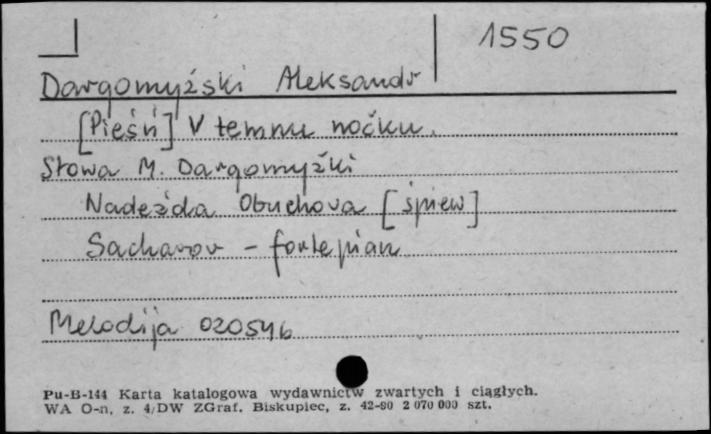 1550
Dargomyžski Aleksandr
[Pieśń] V temnu nočku.
Słowa M. Dargomyžki
Nadežda Obuchova [śpiew]
Sacharov - fortepian
Melodija 020546
Pu-B-144 Karta katalogowa wydawnictw zwartych i ciągłych.
WA O-n, z. 4/DW ZGraf. Biskupiec, z. 42-90 2 070 000 szt.